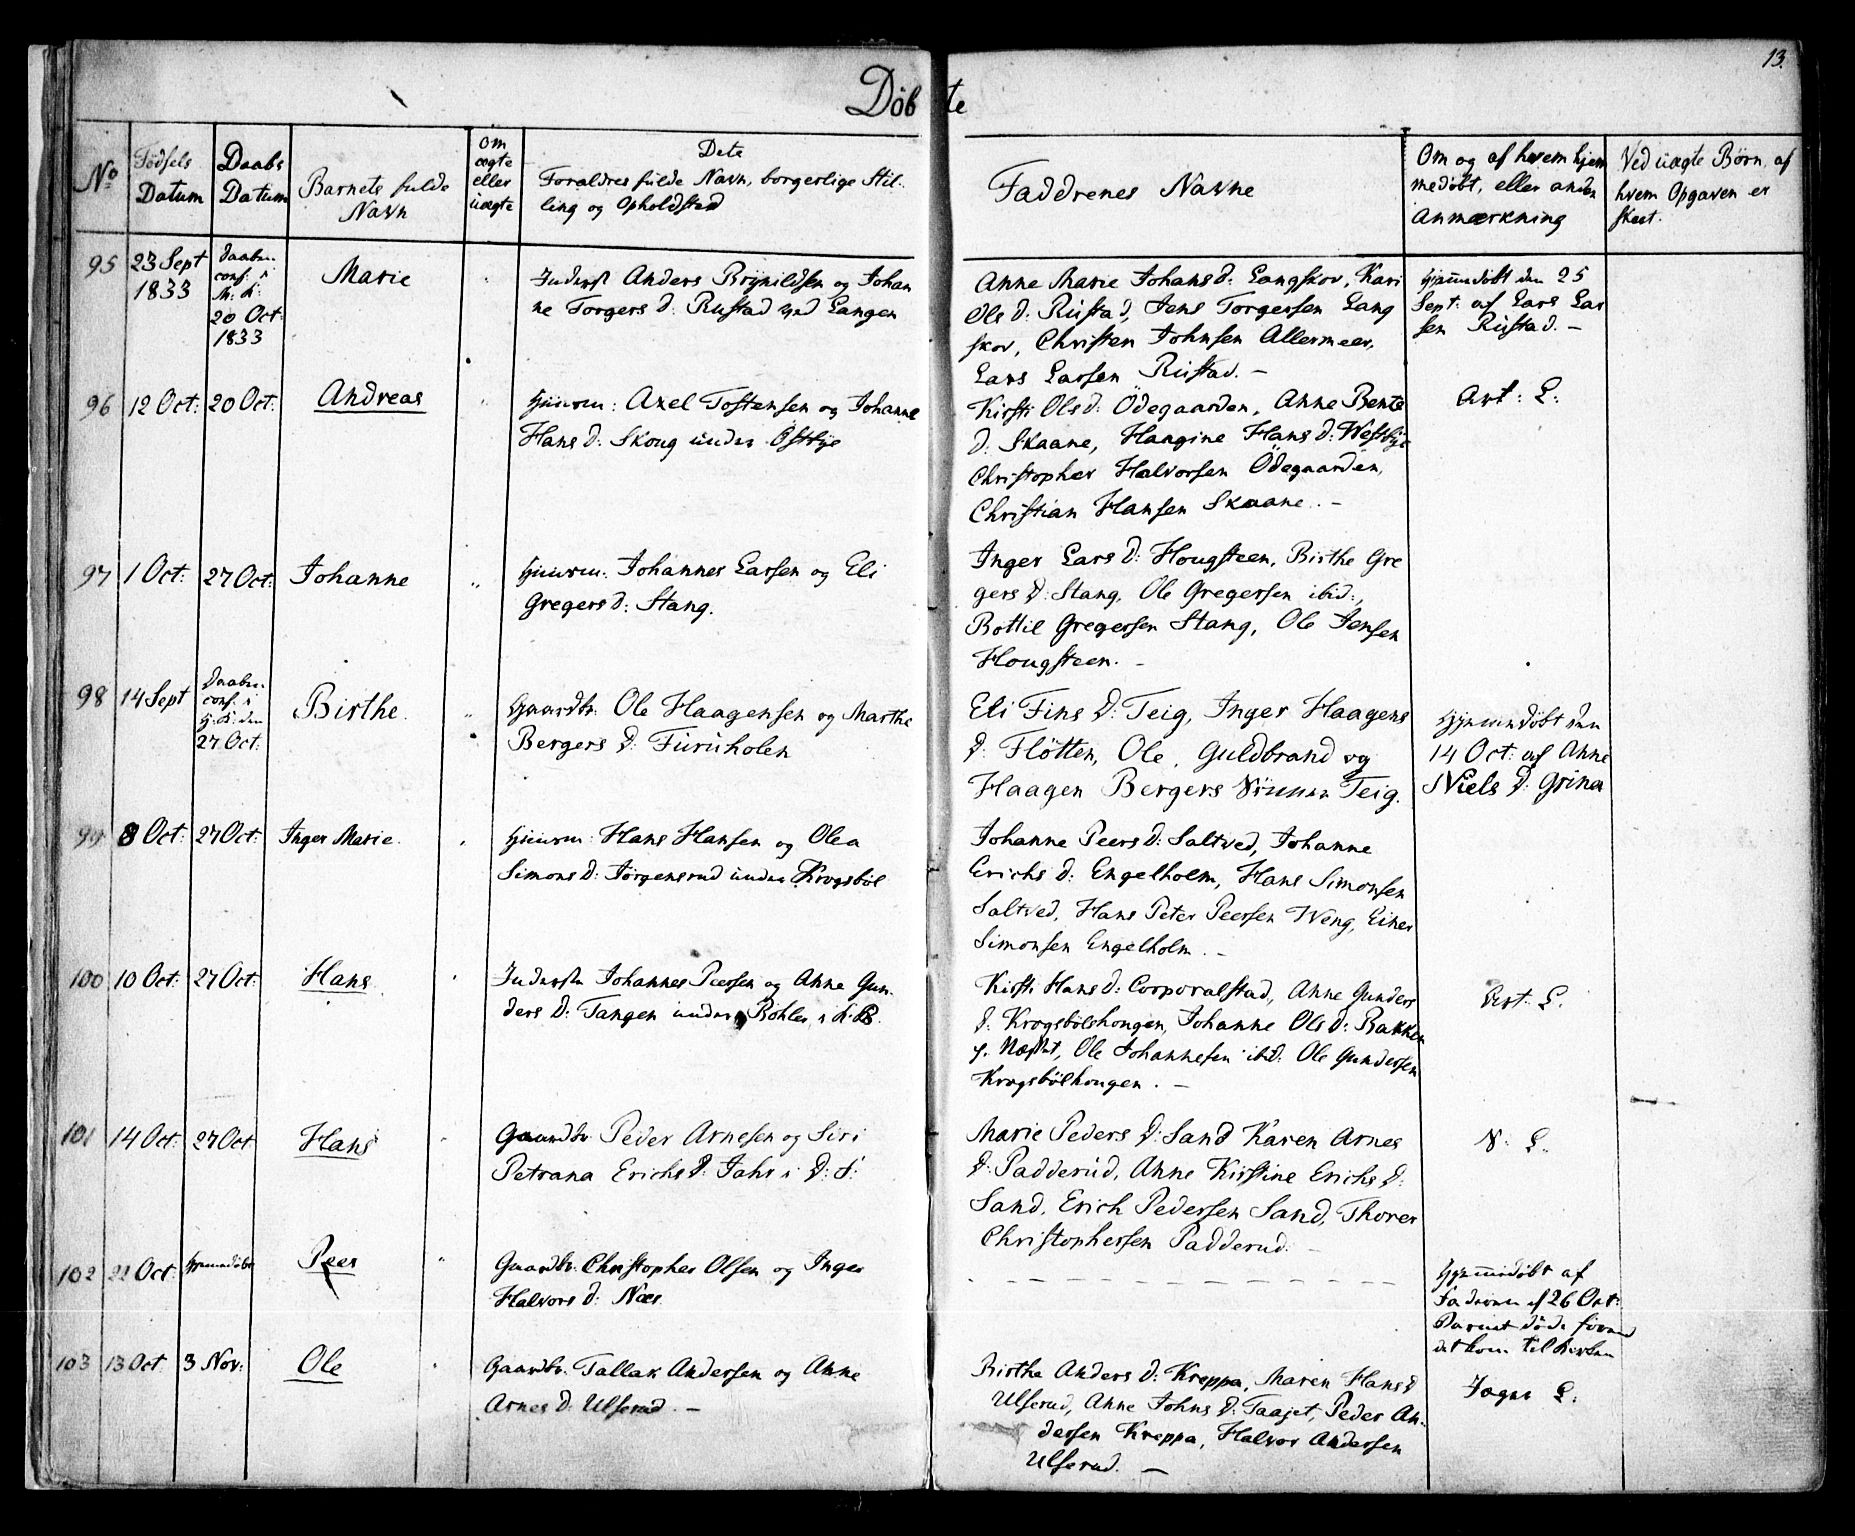 13.
Döbte
No
Födsels Datum
Daabs Datum
Barnets fulde Navn
Om ægte eller uægte
Dets Foraldres fulde Navn, borgerlige Stilling og Opholdsted
Faddrenes Navne
Om og af hvem hjemmedöbt, eller anden Anmærkning
Ved uægte Börn, af hvem Opgaven er skeet.
95 23 Sept 1833
Daaben conf. i
20 Oct: 1833
Marie
Inderst Anders Brynildsen og Johan
ne Torgers D: Rustad ved Langen
Anne Marie Johans d: Langskov, Kari
Ols d: Rustad, Jens Torgersen Lang
skov, Christen Johnsen Allermeer,
Lars Larsen Rustad. –
Hjemmedöbt den 25
Sept: af Lars Lar
sen Rustad. –
96 12 Oct: 20 Oct: Andreas
Huusm: Axel Tostensen og Johanne
Hans d: Skoug under Östbye
Kirsti Ols d: Ödegaarden, Anne Bente
d: Skaane, Hangine Hans d: Westbye
Christopher Halvorsen Ödegaarden,
Christian Hansen Skaane. –
Art: L:
97 1 Oct: 27 Oct: Johanne
Huusm: Johannes Larsen og Eli
Gregers d: Stang.
Inger Lars d: Hougsteen, Birthe Gre
gers D: Stang, Ole Gregersen ibid:,
Bottil Gregersen Stang, Ole Jensen
Hougsteen. –
98 14 Sept
Daaben
conf. i
H: K: den
27 Oct:
Birthe.
Gaardbr: Ole Haagensen og Marthe
Bergers D: Furuholen
Eli Fins D: Teig, Inger Haagens
d: Flötten, Ole, Guldbrand og
Haagen Bergers Teig.
Hjemmedöbt den
14 Oct: af Anne
Niels D: Grina
99 8 Oct: 27 Oct: Inger Marie.
Huusm: Hans Hansen og Olea
Simons d: Jörgensrud under Krogsböl
Johanne Peers d: Saltved, Johanne
Erichs d: Engelholm, Hans Simonsen
Saltved, Hans Peter Peersen Weng, Einer
Simonsen Engelholm. –
100 10 Oct: 27 Oct: Hans
Inderste Johannes Peersen og Anne Gun
ders D: Tangen under Böhler i K: B.
Kirsti Hans d: Corporalstad, Anne Gunders
d: Krogsbölshougen, Johanne Ols d: Bakken
Ole Johannesen ibd: Ole Gundersen
Krogsbölhougen. –
Art: L.
101 14 Oct: 27 Oct Hans
Gaardbr Peder Arnesen og Siri
Petrana Erichs D: Jahr i D: S:
Marie Peders D: Sand Karen Arnes
D: Padderud, Anne Kirstine Erichs D:
Sand, Erich Pedersen Sand, Thorer
Christophersen Padderud. –
N: L.
102 22 Oct: Hjemmedöbt Peer
Gaardbr. Christopher Olsen og Inger
Halvors d: Næs.
Hjemmedöbt af
Faderen d 26 Oct:
Barnet döde forend
det kom til Kirken
103 13 Oct 3 Nov: Ole
Gaardbr. Tallak Andersen og Anne
Arnes D: Ulserud. –
Birthe Anders d: Kreppa, Maren Hans d
Ulserud, Anne Johns D: Taajet, Peder An-
dersen Kreppa, Halvor Andersen
Ulserud. –
L: